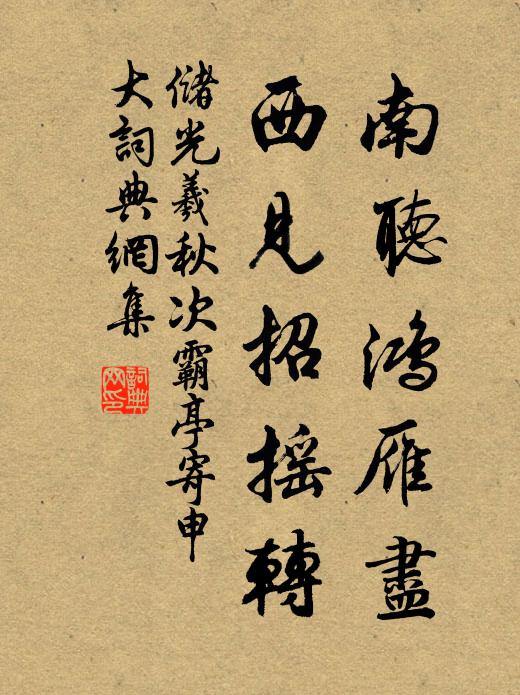 南聽鴻雁盡
西見招搖轉
儲光羲秋次霸亭寄申
大詞典網集
詞典
网印